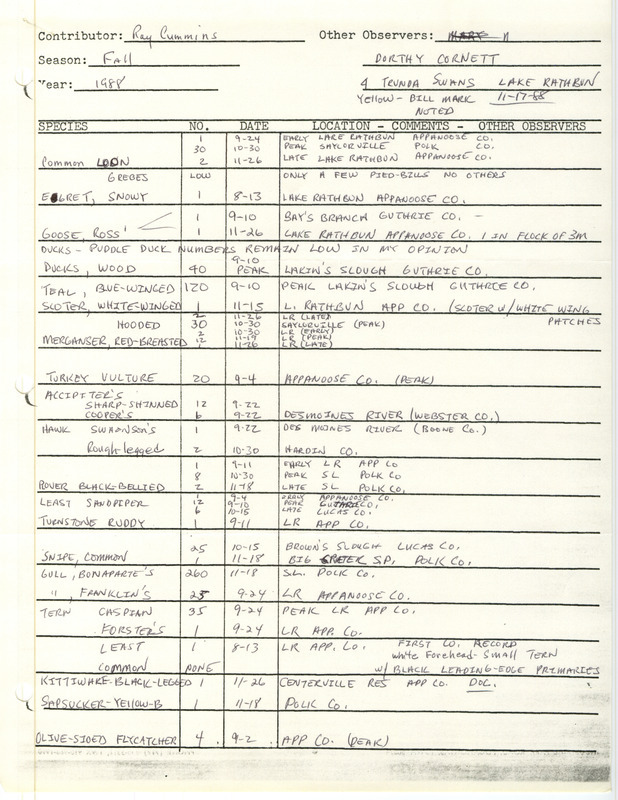 Contributor: Ray Cummins Other Observers:
Season: Fall DORTHY CORNETT
Year: 1988 4 TRUNDA SWANS LAKE RATHBUN
YELLOW-BILL MARK 11-17-88
NOTED
SPECIES NO. DATE LOCATION - COMMENTS - OTHER OBSERVERS
1 9-24 EARLY LAKE RATHBUN APPANOOSE CO.
30 10-30 PEAK SAYLORVILLE POLK CO.
Common LOON 2 11-26 LATE LAKE RATHBUN APPANOOSE CO.
GREBES LOW ONLY A FEW PIED-BILLS NO OTHERS
EGRET, SNOWY 1 8-13 LAKE RATHBUN APPANOOSE CO.
1 9-10 BAY'S BRANCH GUTHRIE CO. -
GOOSE, ROSS' 1 11-26 LAKE RATHBUN APPANOOSE CO. 1 IN FLOCK OF 3M
DUCKS - PUDDLE DUCK NUMBERS REMAIN LOW IN MY OPINION
DUCKS, WOOD 40 9-10 PEAK LAKIN'S SLOUGH GUTHRIE CO.
TEAL, BLUE-WINGED 120 9-10 PEAK LAKIN'S SLOUGH GUTHRIE CO.
SCOTER, WHITE-WINGED 1 11-15 L. RATHBUN APP CO. (SCOTER W/ WHITE WING
PATCHES
2 11-26 LR (LATE)
HOODED 30 10-30 SAYLORVILLE (PEAK)
2 10-30 LR (EARLY)
MERGANSER, RED-BREASTED 12 11-19 LR (PEAK)
1 11-26 LR (LATE)
TURKEY VULTURE 20 9-4 APPANOOSE CO. (PEAK)
ACCIPITER'S
SHARP-SHINNED 12 9-22
COOPER'S 6 9-22 DESMOINES RIVER (WEBSTER CO.)
HAWK SWAINSON'S 1 9-22 DES MOINES RIVER (BOONE CO.)
Rough legged 2 10-30 HARDIN CO.
1 9-11 EARLY LR APP CO
8 10-30 PEAK SL POLK CO.
PLOVER BLACK-BELLIED 2 11-18 LATE SL POLK CO.
1 9-4 EARLY APPANOOSE CO.
LEAST SANDPIPER 12 9-10 PEAK GUTHRIE CO.
6 10-15 LATE LUCAS CO.
TURNSTONE RUDDY 1 9-11 LR APP CO.
25 10-15 BROWN'S SLOUGH LUCAS CO.
SNIPE, COMMON 1 11-18 BIG CREEK S.P. POLK CO.
GULL, BONAPARTE'S 260 11-18 S.L. POLK CO.
", FRANKLIN'S 25 9-24 LR APPANOOSE CO.
TERN CASPIAN 35 9-24 PEAK LR APP CO.
FORSTER'S 1 9-24 LR APP. CO.
LEAST 1 8-13 LR APP. CO. FIRST CO. RECORD
White Forehead-Small Tern
COMMON NONE W/ BLACK LEADING-EDGE PRIMARIES
KITTIWAKE-BLACK-LEGGED 1 11-26 CENTERVILLE RES APP CO. DOC.
SAPSUCKER-YELLOW-B 1 11-18 POLK CO.
OLIVE-SIDED FLYCATCHER 4 9-2 APP CO. (PEAK)